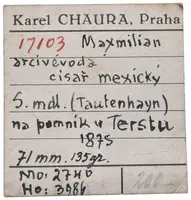 Karel CHAURA, Praha
17103 Maxmilian
arcivévoda
cisař mexický
S. mdl. (Tautenhayn)
na pomník v Terstu
1875
71 mm. 135 gr.
Mo: 2740
Ho: 3986